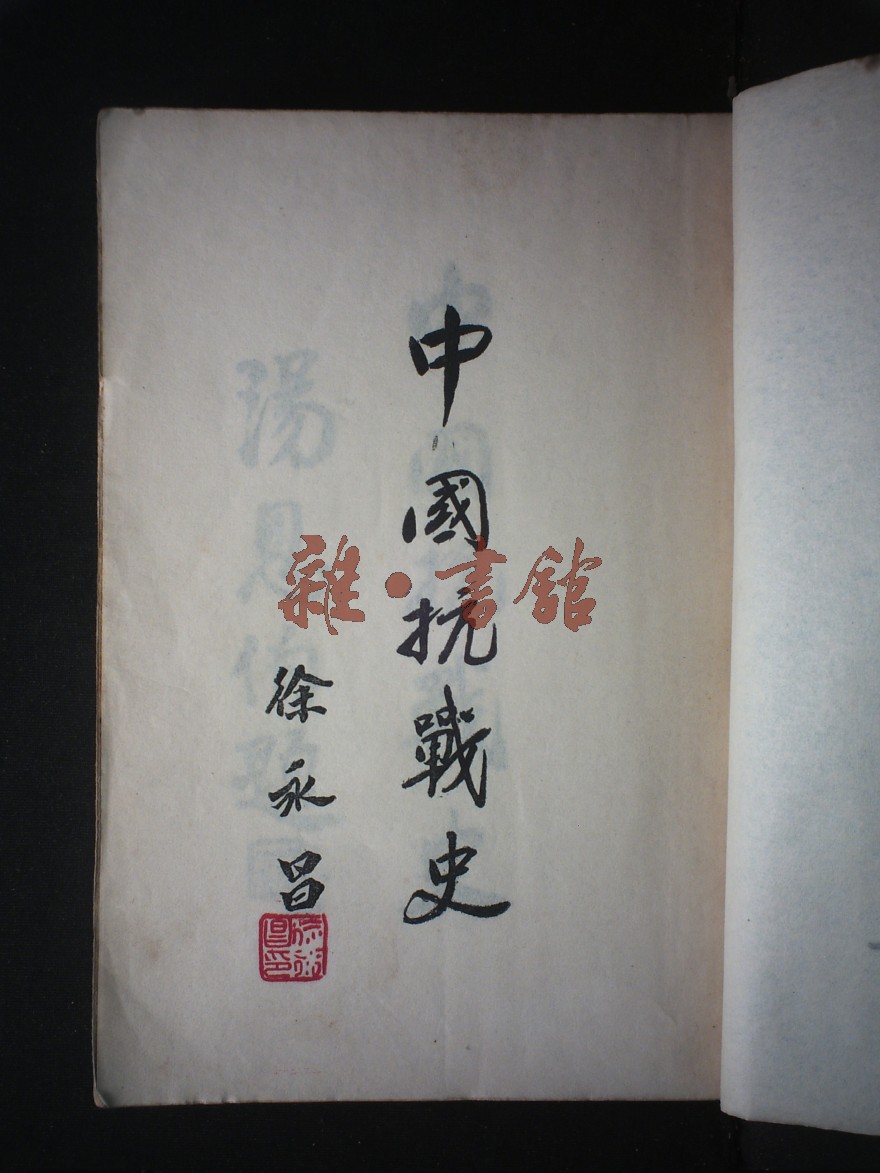 中國抗戰史
徐永昌
徐永昌印
雜·書館